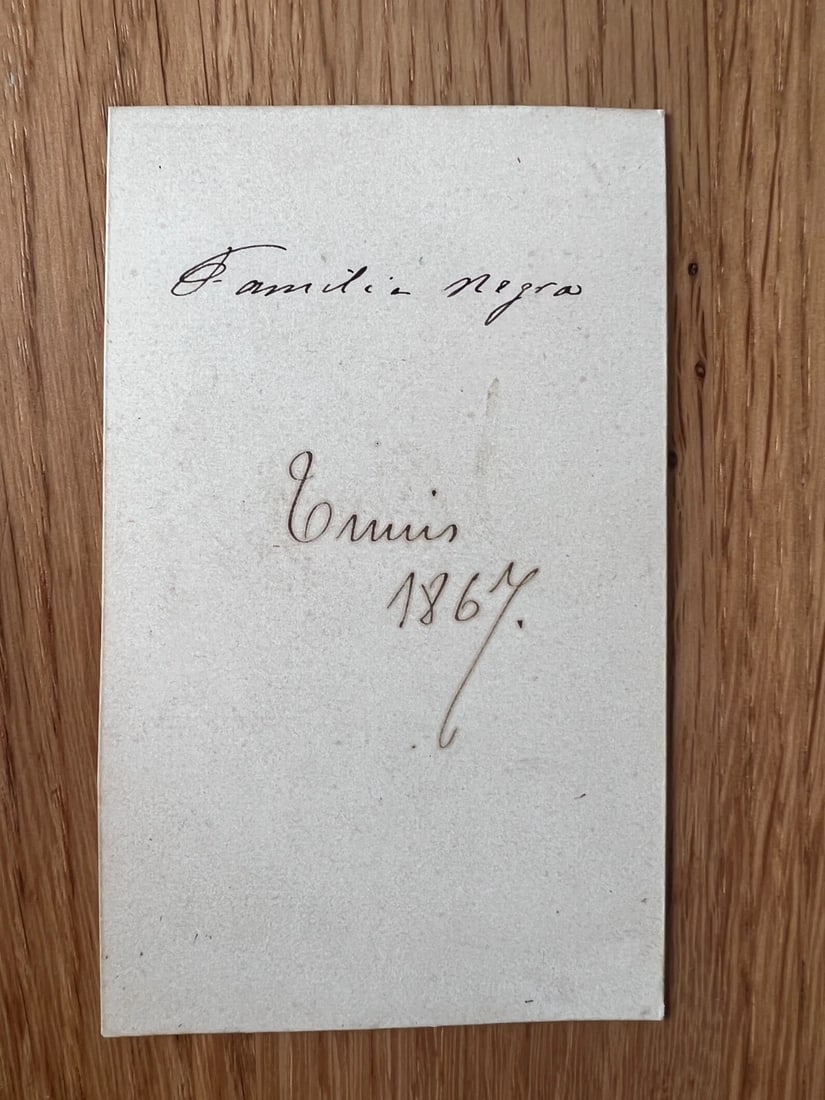 Familia negra
Tunis
1867.